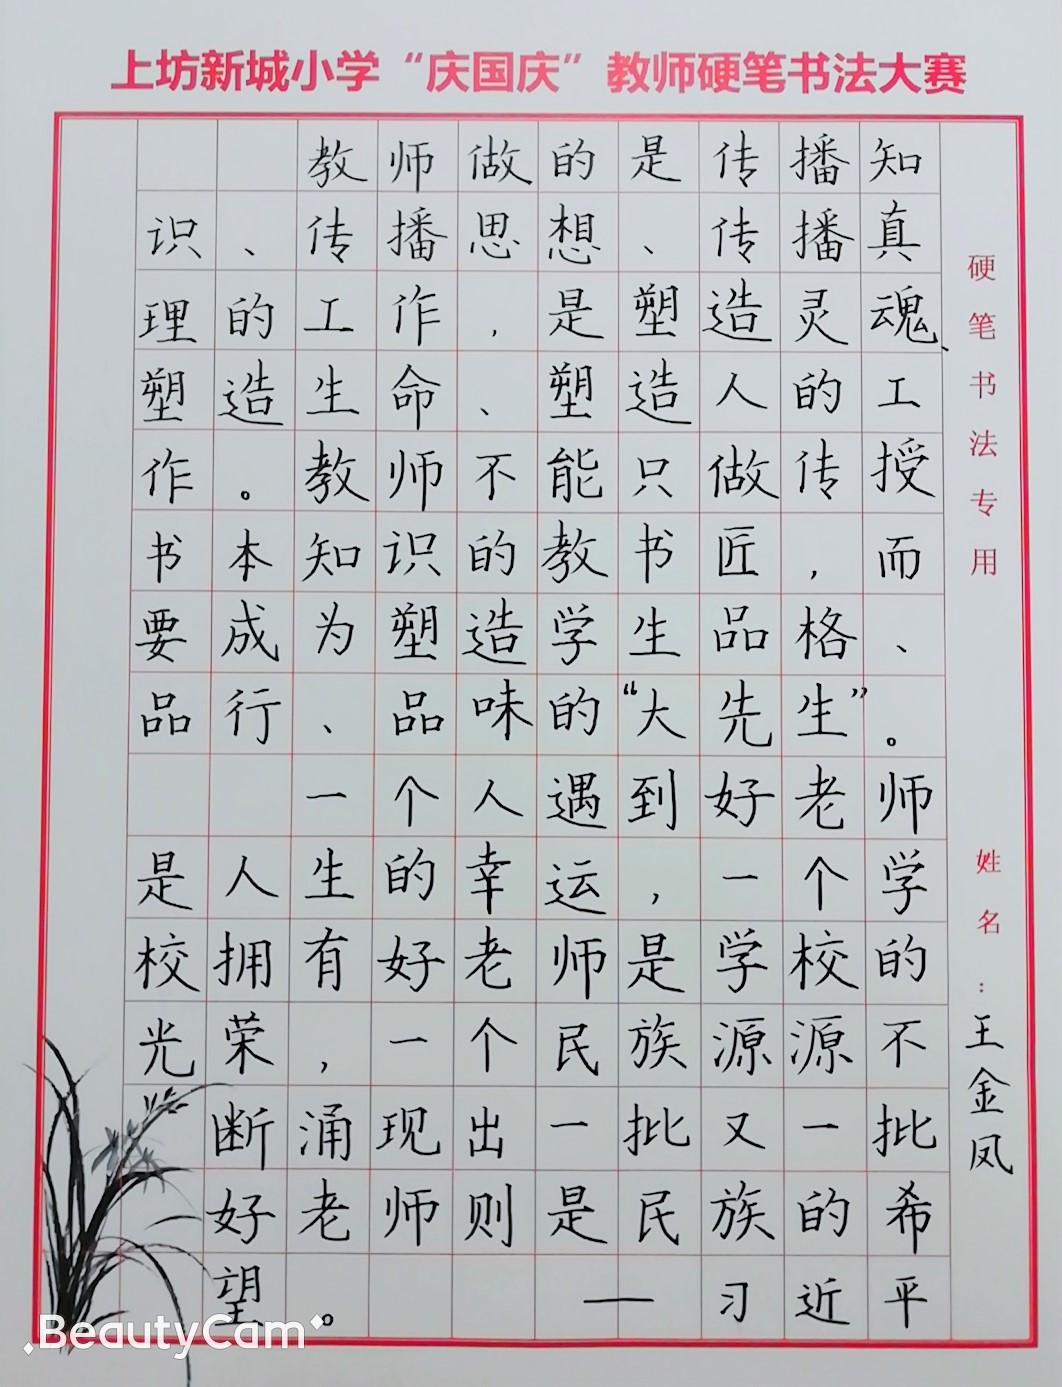 上坊新城小学“庆国庆”教师硬笔书法大赛
教师做的是传播知
识、传播思想、传播真
理的工作，是塑造灵魂、
塑造生命、塑造人的工
作。教师不能只做传授
书本知识的教书匠，而
要成为塑造学生品格、
品行、品味的“大先生”。
一个人遇到好老师
是人生的幸运，一个学
校拥有好老师是学校的
光荣，一个民族源源不
断涌现出一批又一批
好老师则是民族的希
望。——习近平
硬笔书法专用
姓名：王金凤
BeautyCam